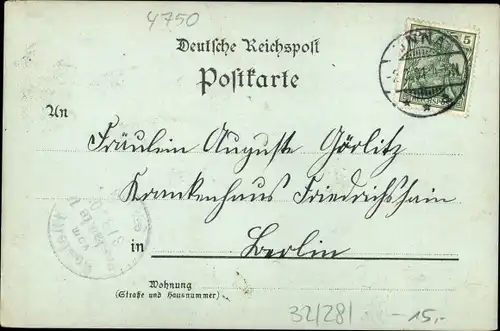 4750
5
UNNA
Deutsche Reichspost
Postkarte
An
Fräulein Auguste Görlitz
Krankenhaus Friedrichshain
in Berlin
Wohnung
(Straße und Hausnummer)
32/28/ -15,-